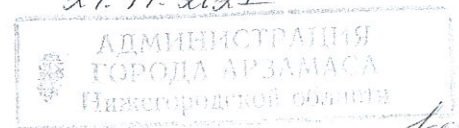 АДМИНИСТРАЦИЯ
ГОРОДА АРЗАМАСА
Нижегородской области